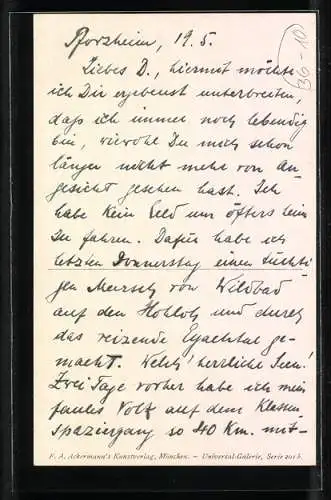 Pforzheim, 19.5.
Liebes D., hiermit möchte
ich Dir ergebenst unterbreiten,
daß ich immer noch lebendig
bin, wiewohl Du mich schon
länger nicht mehr von An-
gesicht gesehen hast. Ich
habe kein Geld um öfters heim
zu fahren. Dafür habe ich
letzten Donnerstag einen tüchti-
gen Marsch von Wildbad
auf den Hohloh und durch
das reizende Eyachtal ge-
macht. Welch' herrliche Seen!
Zwei Tage vorher habe ich mein
faules Volk auf dem Klassen-
spaziergang so 40 Km. mit-
F. A. Ackermann's Kunstverlag, München. – Universal-Galerie, Serie 201 b.
36-10